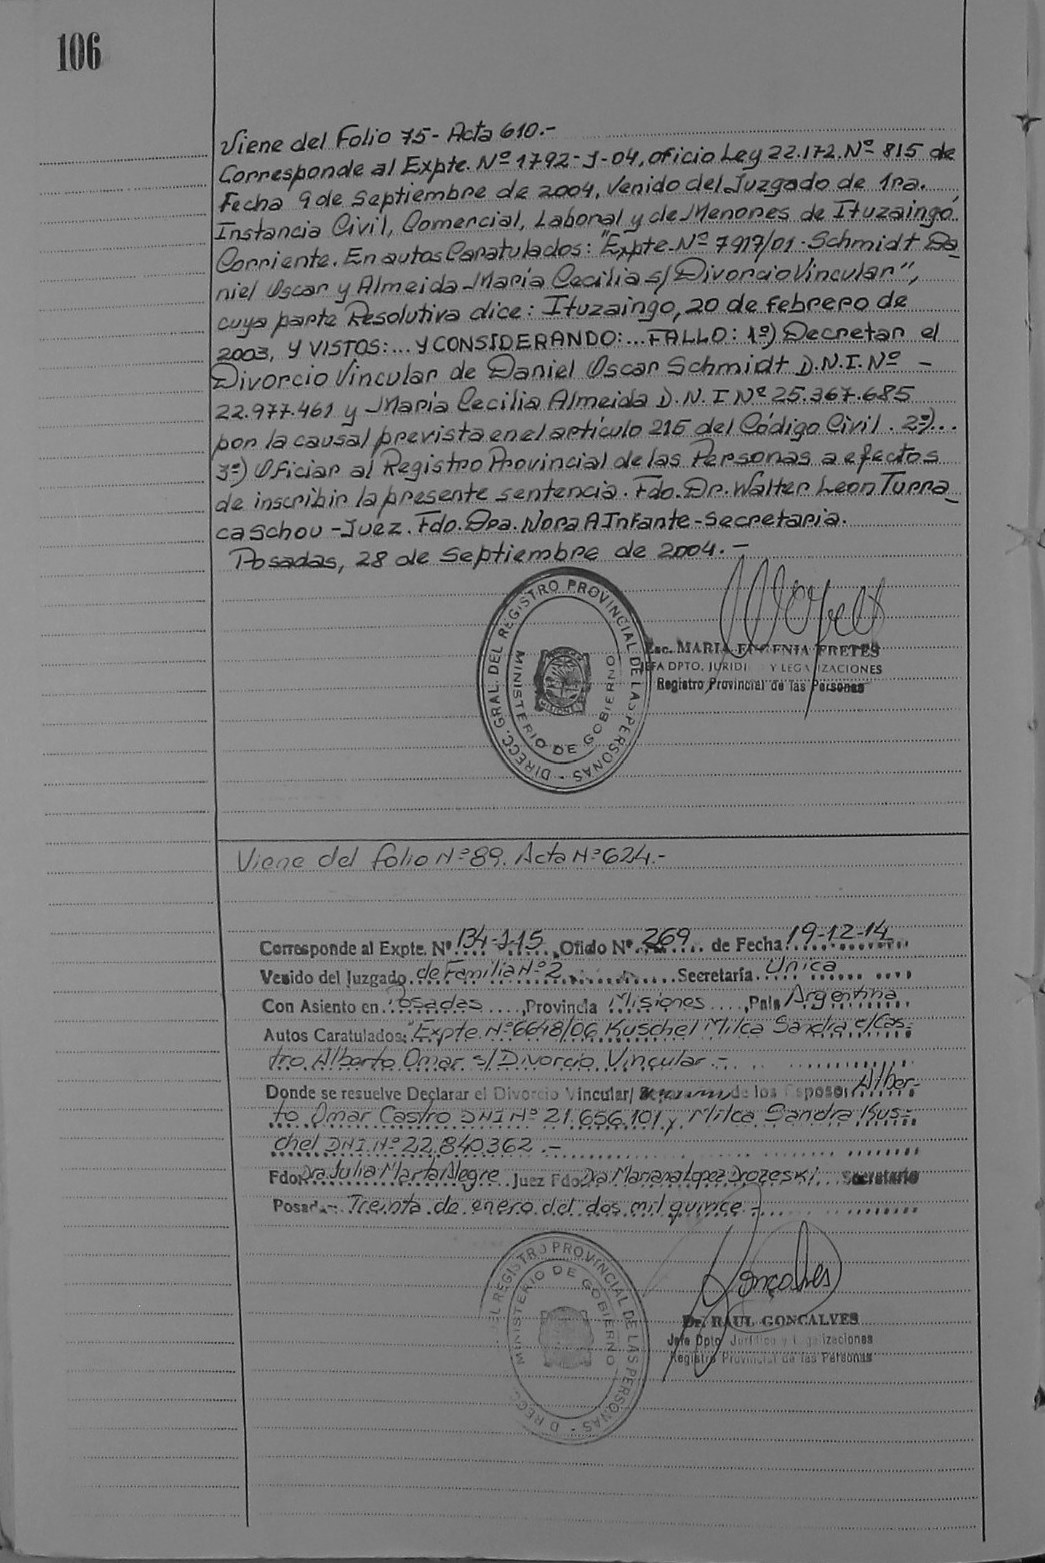 106
Viene del Folio 75- Acta 610.-
Corresponde al Expte. Nº 1792-J-04, oficio Ley 22.172. Nº 815 de
Fecha 9 de Septiembre de 2004, venido del Juzgado de 1ra.
Instancia Civil, Comercial, Laboral y de Menores de Ituzaingó
Corriente. En autos Caratulados: "Expte. Nº 7917/01. Schmidt Da
niel Oscar y Almeida María Cecilia s/ Divorcio Vincular",
cuya parte Resolutiva dice: Ituzaingo, 20 de febrero de
2003, Y VISTOS:... Y CONSIDERANDO:... FALLO: 1º) Decretar el
Divorcio Vincular de Daniel Oscar Schmidt D.N.I. Nº -
22.977.461 y María Cecilia Almeida D.N.I Nº 25.367.685
por la causal prevista en el artículo 215 del Código Civil. 2º)...
3º) Oficiar al Registro Provincial de las Personas a efectos
de inscribir la presente sentencia. Fdo. Dr. Walter Leon Turra_
ca Schou - Juez. Fdo. Dra. Nora A Infante - Secretaria.
Posadas, 28 de Septiembre de 2004.-
DIRECC. GRAL. DEL REGISTRO PROVINCIAL DE LAS PERSONAS -
MINISTERIO DE GOBIERNO
Esc. MARIA EUGENIA FRETES
JEFA DPTO. JURIDI Y LEGALIZACIONES
Registro Provincial de las Personas
Viene del folio Nº 89. Acta Nº 624.-
Corresponde al Expte. Nº 134-J-15, Oficio Nº 269 de Fecha 19-12-14
Venido del Juzgado de Familia Nº 2 Secretaría Unica
Con Asiento en Posadas, Provincia Misiones, País Argentina
Autos Caratulados: "Expte Nº 6648/06 Kuschel Milca Sandra c/ Cas-
tro Alberto Omar s/ Divorcio Vincular.-
Donde se resuelve Declarar el Divorcio Vincular/ de los Esposo: Alber-
to Omar Castro DNI Nº 21.656.101 y Milca Sandra Kus-
chel DNI Nº 22.840.362.-
Fdo: Dra Julia Marta Alegre Juez Fdo: Dra Mariana Lopez Drozeski Secretario
Posadas: Treinta de enero del dos mil quince.-
DIRECC DEL REGISTRO PROVINCIAL DE LAS PERSONAS -
MINISTERIO DE GOBIERNO
Goncalves
Dr. RAUL GONCALVES
Jefe Dpto Jurídico y Legalizaciones
Registro Provincial de las Personas